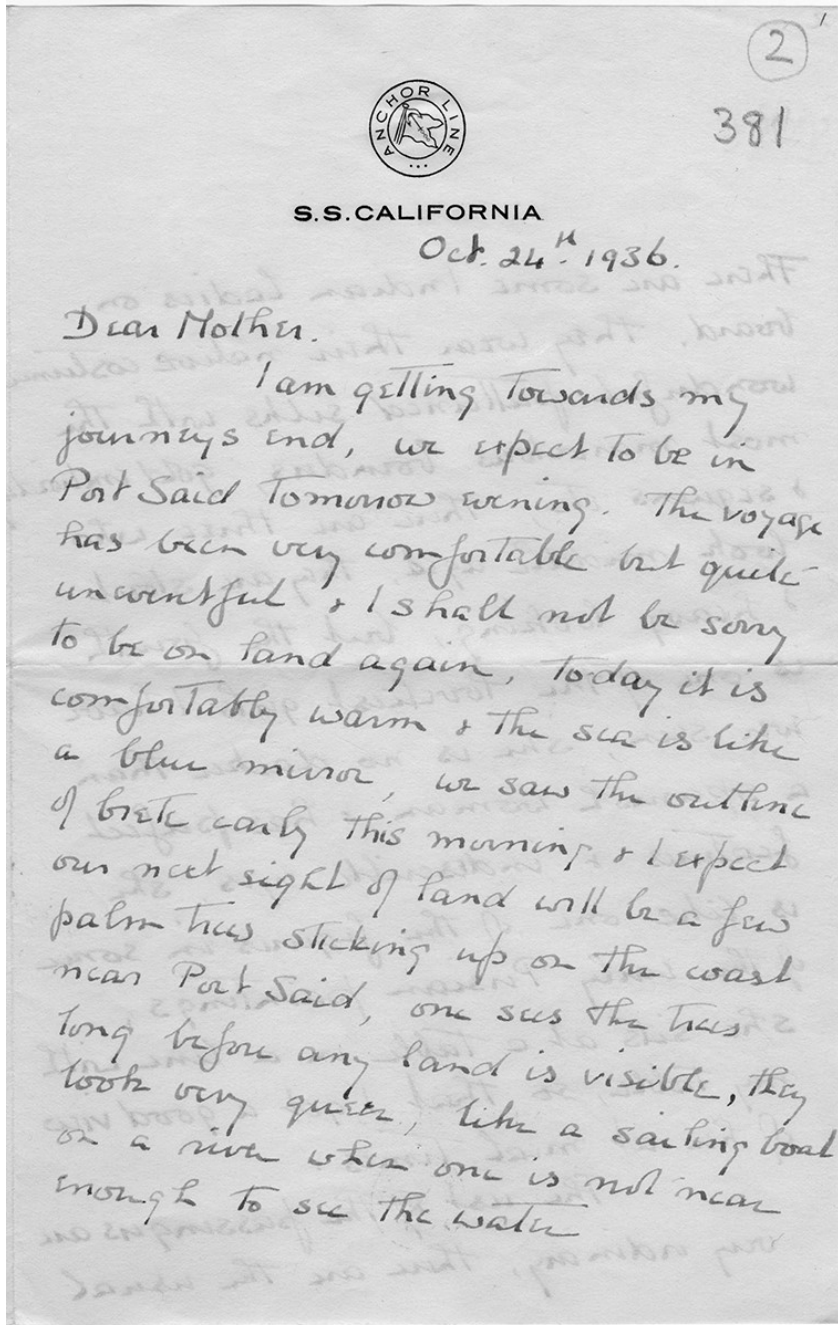 1
2
381
ANCHOR LINE
S.S. CALIFORNIA
Oct. 24th. 1936.
Dear Mother.
I am getting towards my
journeys end, we expect to be in
Port Said tomorrow evening. The voyage
has been very comfortable but quite
uneventful & I shall not be sorry
to be on land again, today it is
comfortably warm & the sea is like
a blue mirror, we saw the outline
of Crete early this morning & I expect
our next sight of land will be a few
palm trees sticking up on the coast
near Port Said, one sees the trees
long before any land is visible, they
look very queer, like a sailing boat
on a river when one is not near
enough to see the water